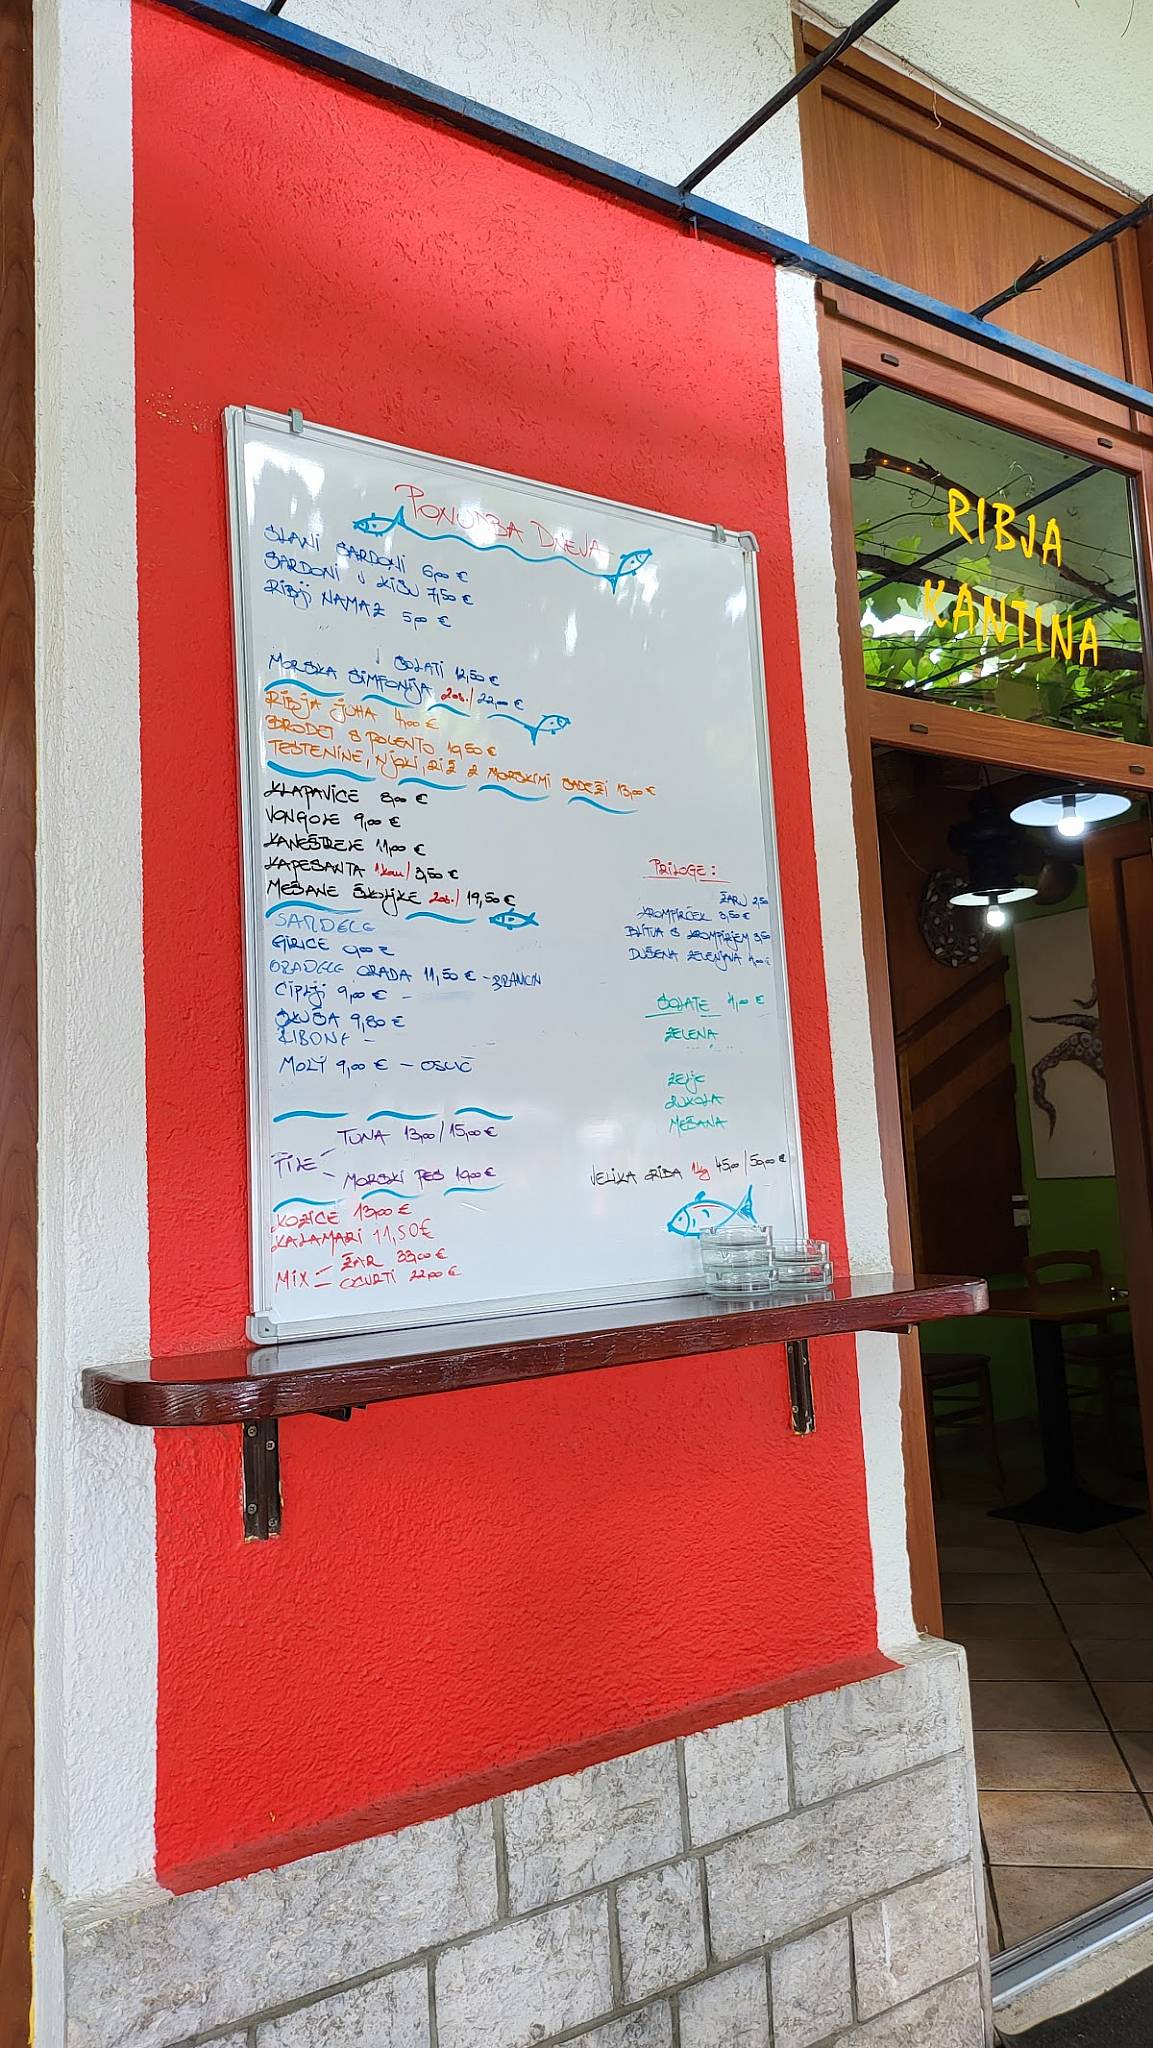 PONUDBA DNEVA
SLANI SARDONI 6,00 €
SARDONI V KISU 7,50 €
RIBJI NAMAZ 5,00 €
V SOLATI 12,50 €
MORSKA SIMFONIJA 2os./ 22,00 €
RIBJA JUHA 4,00 €
BRODET S POLENTO 19,50 €
TESTENINE, NJOKI, RIŽ Z MORSKIMI SADEŽI 13,00 €
KLAPAVICE 8,00 €
VONGOLE 9,00 €
KANEŠTRELE 11,00 €
KAPESANTA 1kom/ 3,50 €
MEŠANE ŠKOLJKE 2os./ 19,50 €
SARDELE
GIRICE 9,00 €
ORADA 11,50 € - BRANCIN
CIPLJI 9,00 € -
SKUŠA 9,80 €
RIBONE -
MOLI 9,00 € - OSLIČ
TUNA 13,00 / 15,00 €
FILE
MORSKI PES 10,00 €
KOZICE 13,00 €
KALAMARI 11,50 €
MIX ŽAR 33,00 €
OCVRTI 22,00 €
PRILOGE:
ŽARJ 2,50
KROMPIRČEK 3,50 €
BLITVA S KROMPIRJEM 3,50
DUŠENA ZELENJAVA 4,00 €
SOLATE 4,00 €
ZELENA
ZELJE
RUKOLA
MEŠANA
VELIKA RIBA 1kg 45,00 / 50,00 €
RIBJA
KANTINA